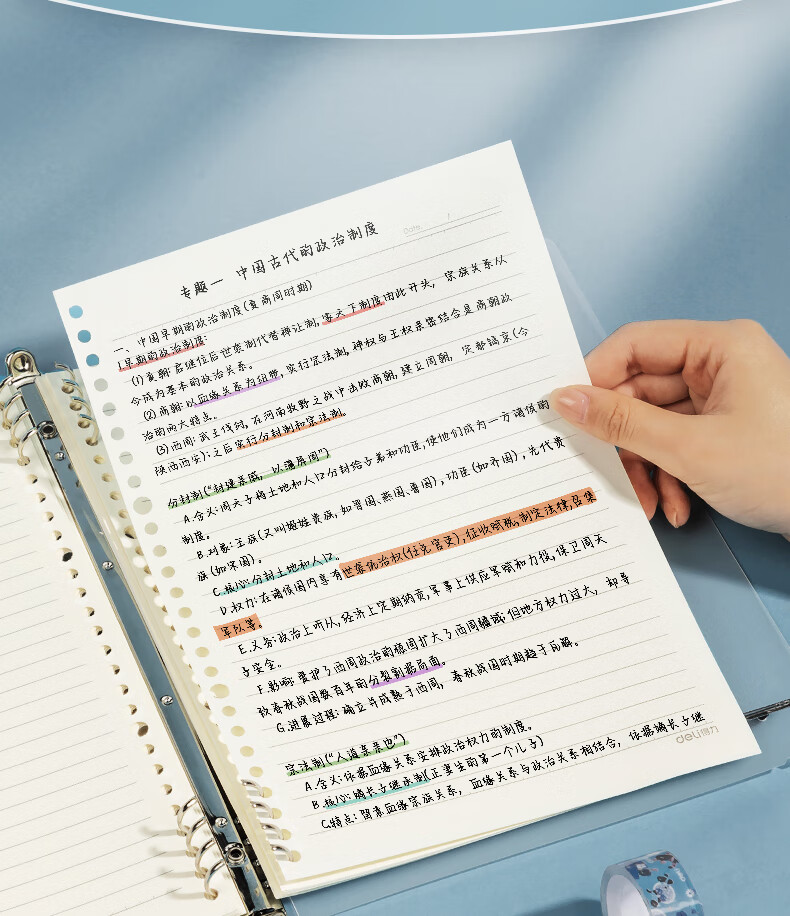 专题一 中国古代的政治制度
Date / 
一、中国早期的政治制度(夏商周时期)
1.早期的政治制度:
(1)夏朝:启继位后世袭制代替禅让制,家天下制度由此开头, 宗族关系从
今成为基本的政治关系。
(2)商朝:以血缘关系为纽带,实行宗法制,神权与王权紧密结合是商朝政
治的两大特点。
(3)西周:武王伐纣,在河南牧野之战中击败商朝,建立周朝, 定都镐京(今
陕西西安);之后实行分封制和宗法制。
分封制("封建亲戚, 以藩屏周")
A.含义:周天子将土地和人口分封给子弟和功臣,使他们成为一方诸侯的
制度。
B.对象:王族(又叫姬姓贵族,如晋国、燕国、鲁国),功臣(如齐国),先代贵
族(如宋国)。
C.核心:分封土地和人口。
D.权力:在诸侯国内享有世袭统治权(任免官吏),征收赋税,制定法律,召集
军队等。
E.义务:政治上听从,经济上定期纳贡,军事上供应军赋和力役,保卫周天
子安全。
F.影响:维护了西周政治的稳固扩大了西周疆域;但地方权力过大, 却导
致春秋战国数百年的分裂割据局面。
G.进展过程:确立并成熟于西周, 春秋战国时期趋于瓦解。
宗法制("人道亲亲也")
A.含义:依据血缘关系安排政治权力的制度。
B.核心:嫡长子继承制(正妻生的第一个儿子)
C.特点:即素血缘宗族关系, 血缘关系与政治关系相结合, 依据嫡长子继
deli得力